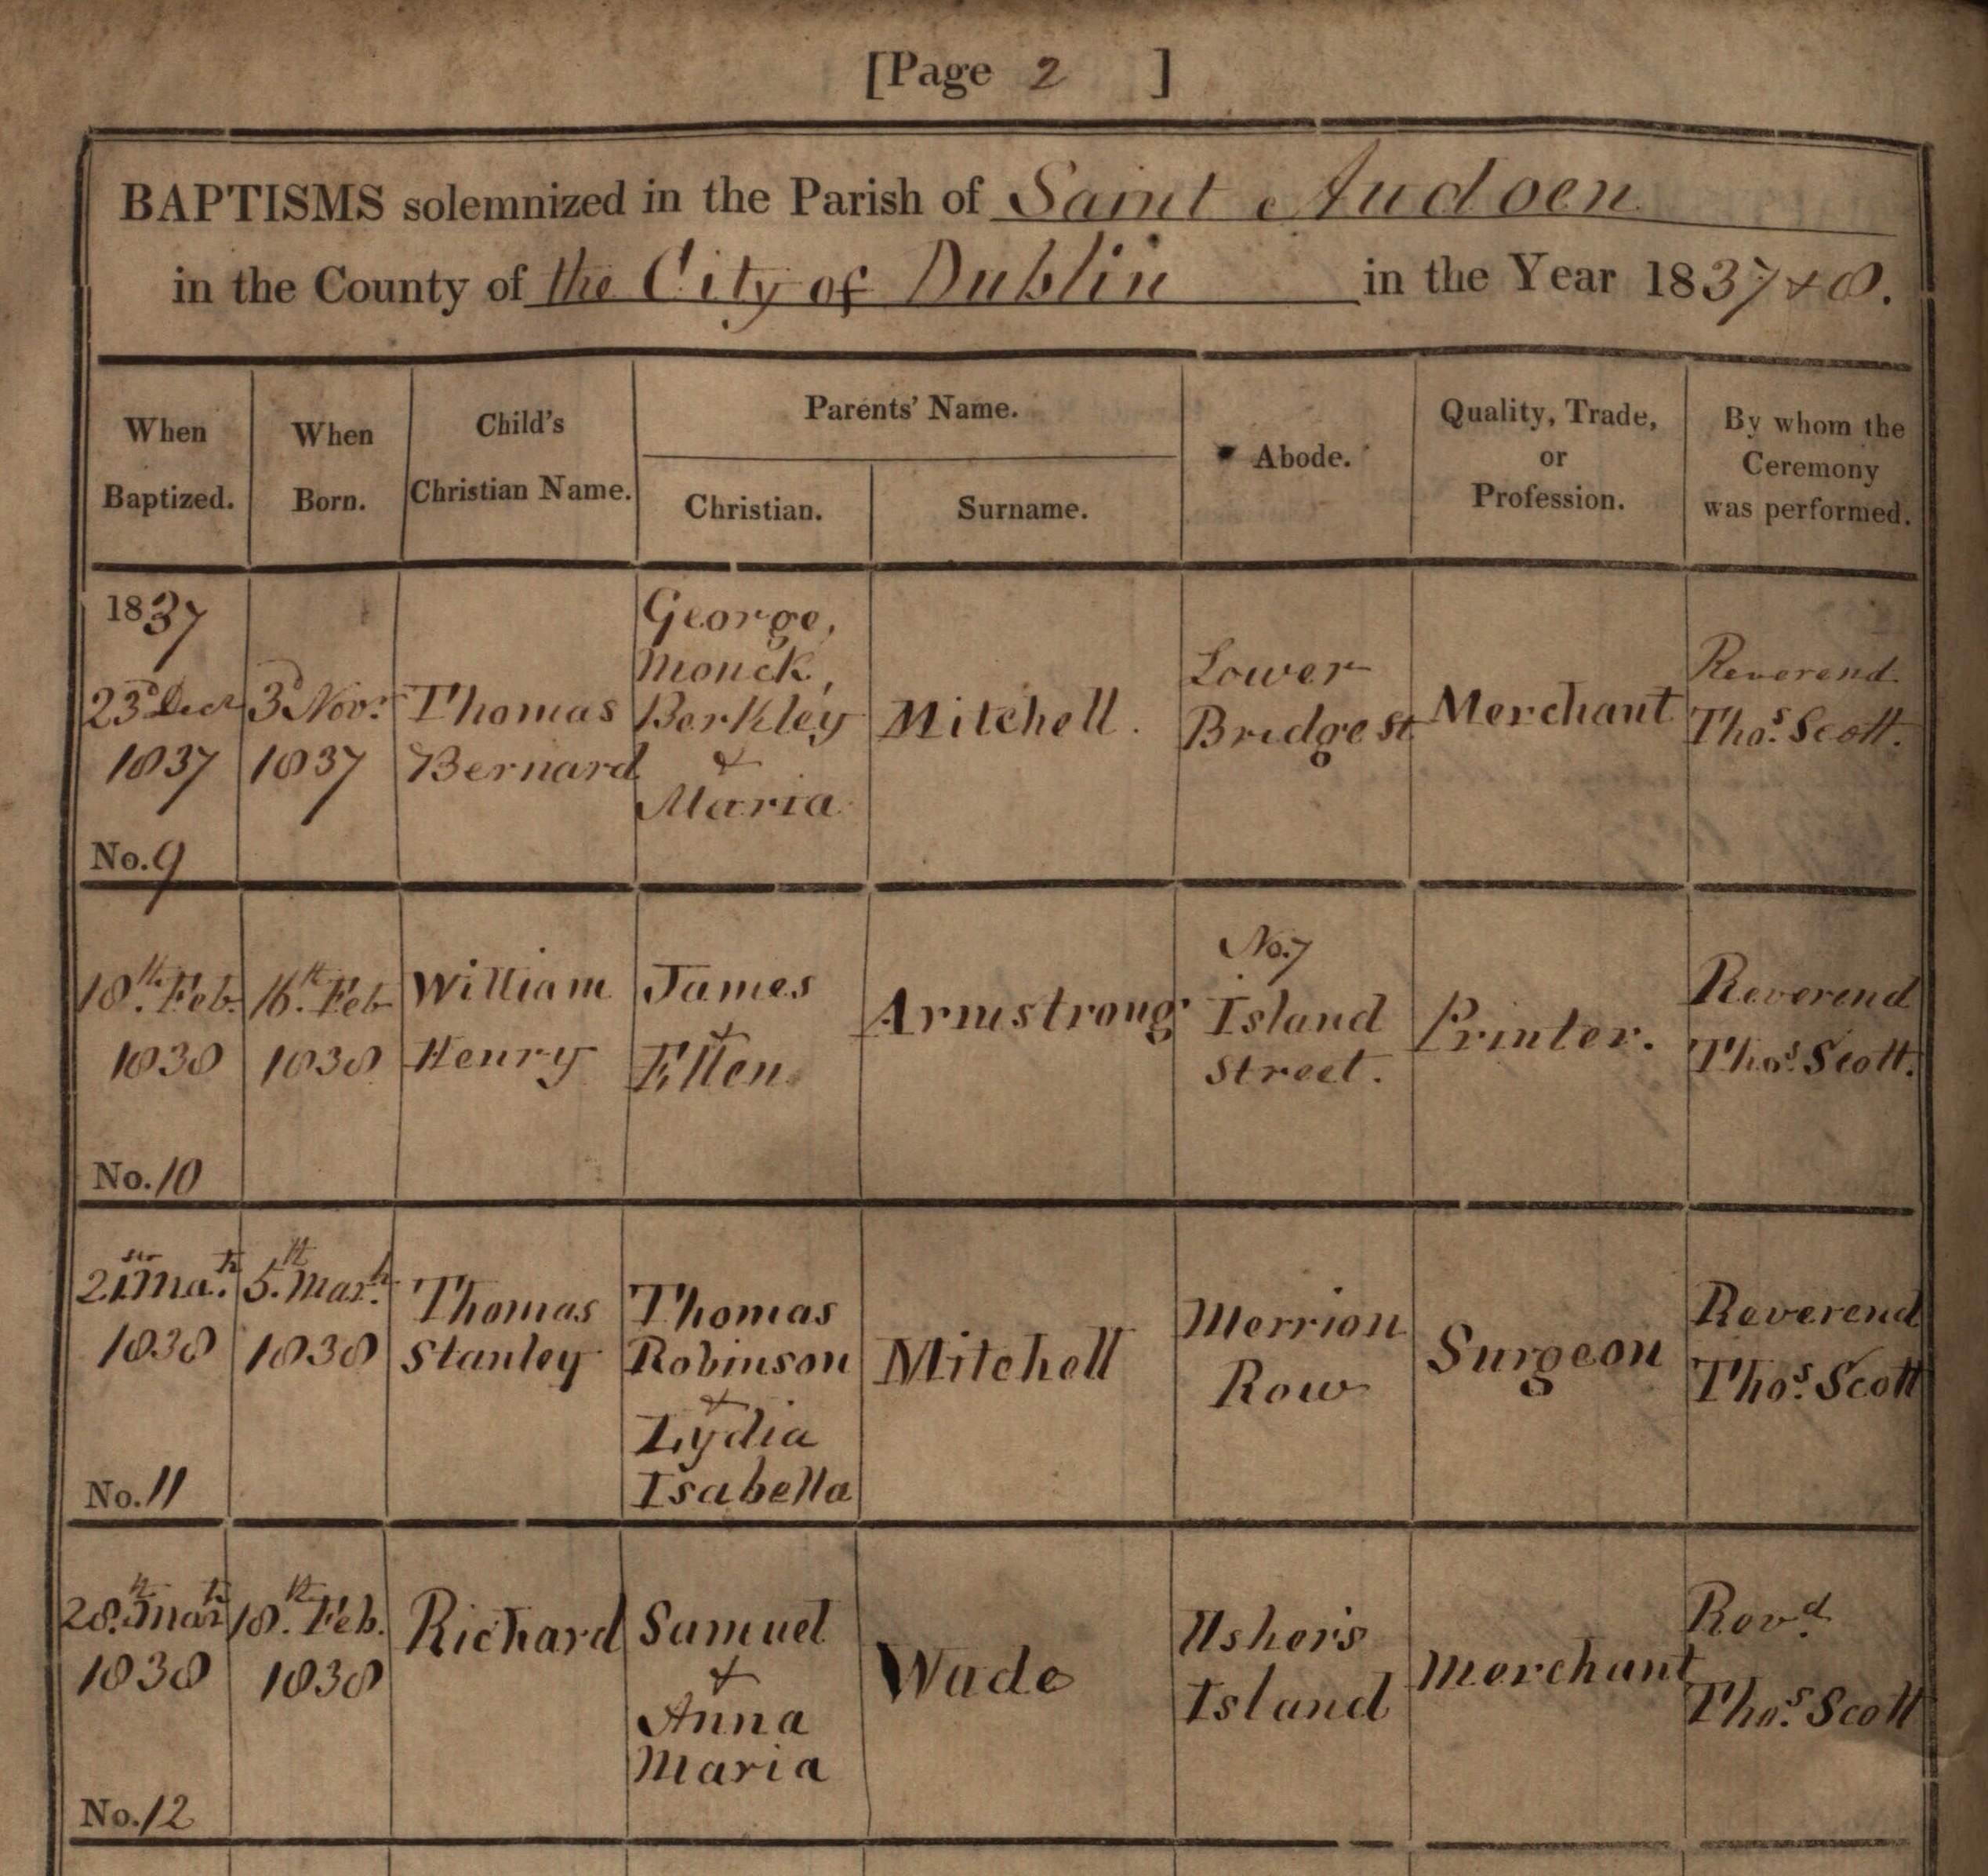 [Page 2 ]
BAPTISMS solemnized in the Parish of Saint Audoen
in the County of the City of Dublin in the Year 1837 & 8.
When
Baptized.
When
Born.
Child's
Christian Name.
Parents' Name.
Christian.
Surname.
Abode.
Quality, Trade,
or
Profession.
By whom the
Ceremony
was performed.
1837
23d Decr
1837
No. 9
3d Novr
1837
Thomas
Bernard
George,
Monck,
Berkley
&
Maria
Mitchell.
Lower
Bridge st
Merchant
Reverend
Thos. Scott.
18th. Feb.
1838
No. 10
16th. Feb
1838
William
Henry
James
&
Ellen
Armstrong
No. 7
Island
Street.
Printer.
Reverend
Thos. Scott.
21st Mah.
1838
No. 11
5th. Marh.
1838
Thomas
Stanley
Thomas
Robinson
&
Lydia
Isabella
Mitchell
Merrion
Row
Surgeon
Reverend
Thos. Scott
28th. Marh
1838
No. 12
18th. Feb.
1838
Richard
Samuel
&
Anna
Maria
Wade
Usher's
Island
Merchant
Revd.
Thos. Scott